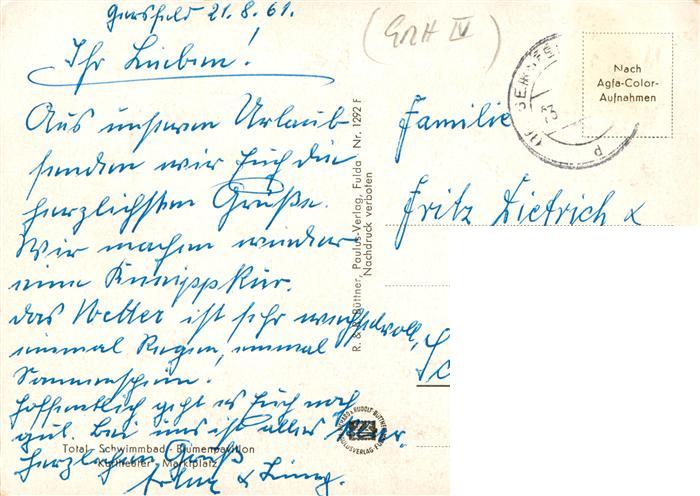 Gersfeld 21.8.61.
Ihr Lieben!
Aus unseren Urlaub
senden wir Euch die
herzlichsten Grüße.
Wir machen wieder
eine Kneippkur.
das Wetter ist sehr wechselvoll,
einmal Regen, einmal
Sonnenschein.
Hoffentlich geht es Euch noch
gut. Bei uns ist alles
Herzlichen Gruß
Total - Schwimmbad - Blumenpavillon
Kurtheater - Marktplatz
R. & R. Büttner, Paulus-Verlag, Fulda · Nr. 1292 F
Nachdruck verboten
Nach
Agfa-Color-
Aufnahmen
Familie
Fritz Dietrich